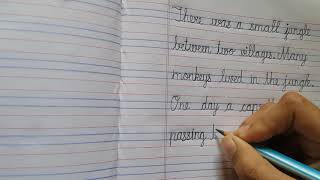 There was a small jungle
between two villages. Many
monkeys lived in the jungle.
One day a
passing